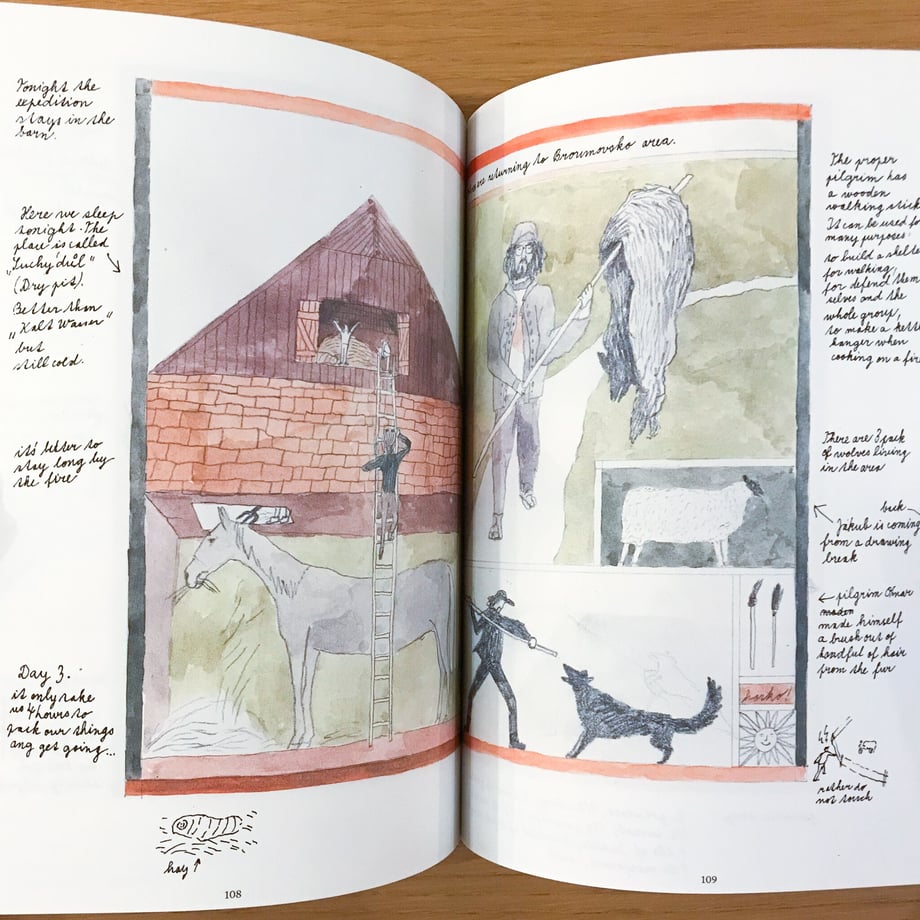 Tonight the
expedition
stays in the
barn.
Here we sleep
tonight. The
place is called
„Suchý důl"
(Dry pit).
Better than
„Kalt Wasser"
but
still cold.
it's better to
stay long by
the fire
Day 3.
it only take
us 4 hours to
pack our things
ang get going...
hay ↑
108
are returning to Broumovsko area.
horko!
The proper
pilgrim has
a wooden
walking stick
It can be used fo
many purposes:
to build a shelte
for walking,
for defend them
selves and the
whole group,
to make a kett
hanger when
cooking on a fir
There are 3 pack
of wolves living
in the area
back
Jakub is coming
from a drawing
break
← pilgrim
made himself
a brush out of
handful of hair
from the fur
rather do
not touch
109